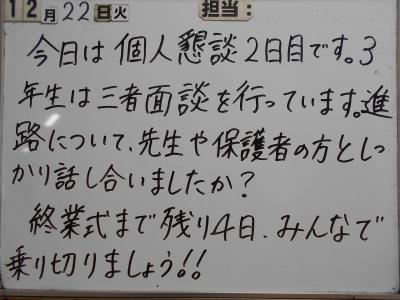 12月22日火 担当：
今日は個人懇談2日目です。3
年生は三者面談を行っています。進
路について、先生や保護者の方としっ
かり話し合いましたか？
終業式まで残り4日、みんなで
乗り切りましょう!!